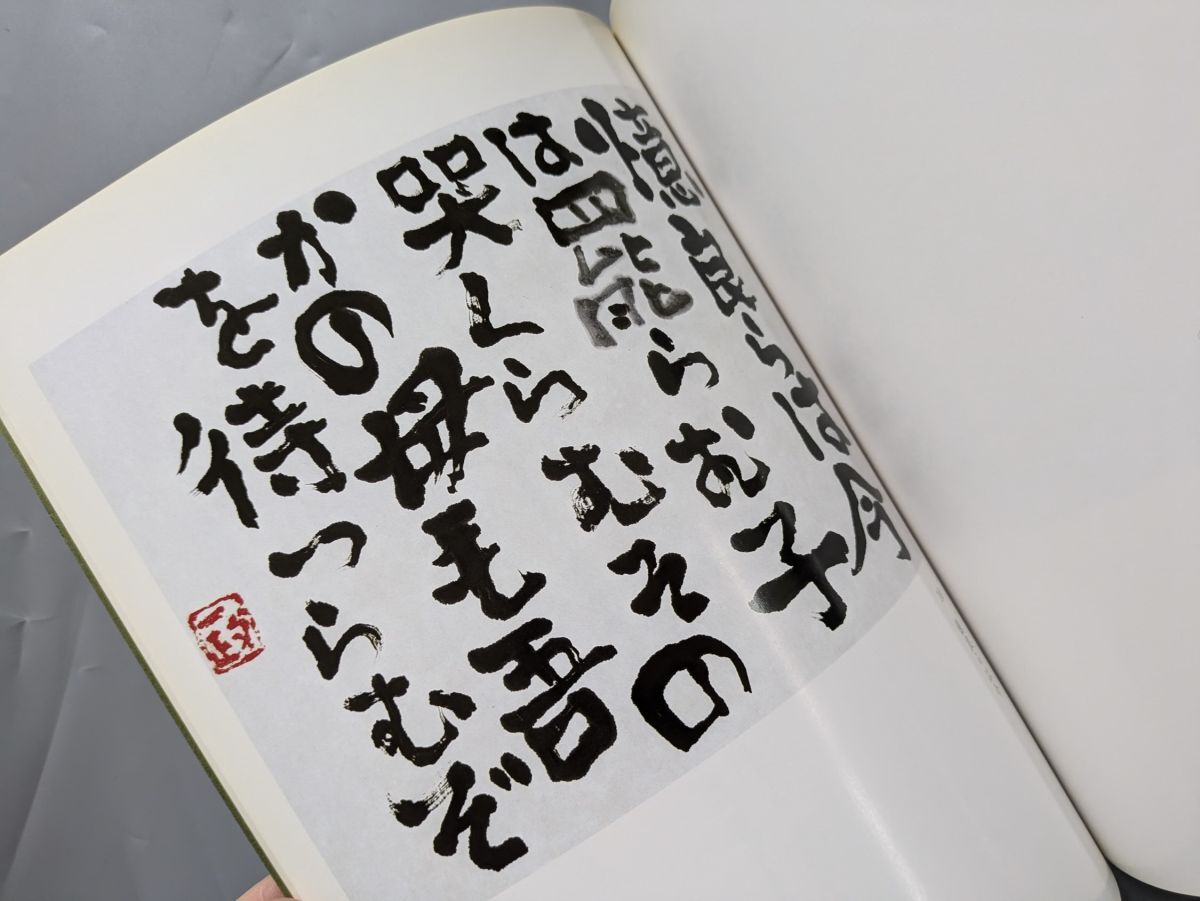 憶良らは今
は罷らむ子
哭くらむその
かの母毛吾
を待つらむぞ
一政